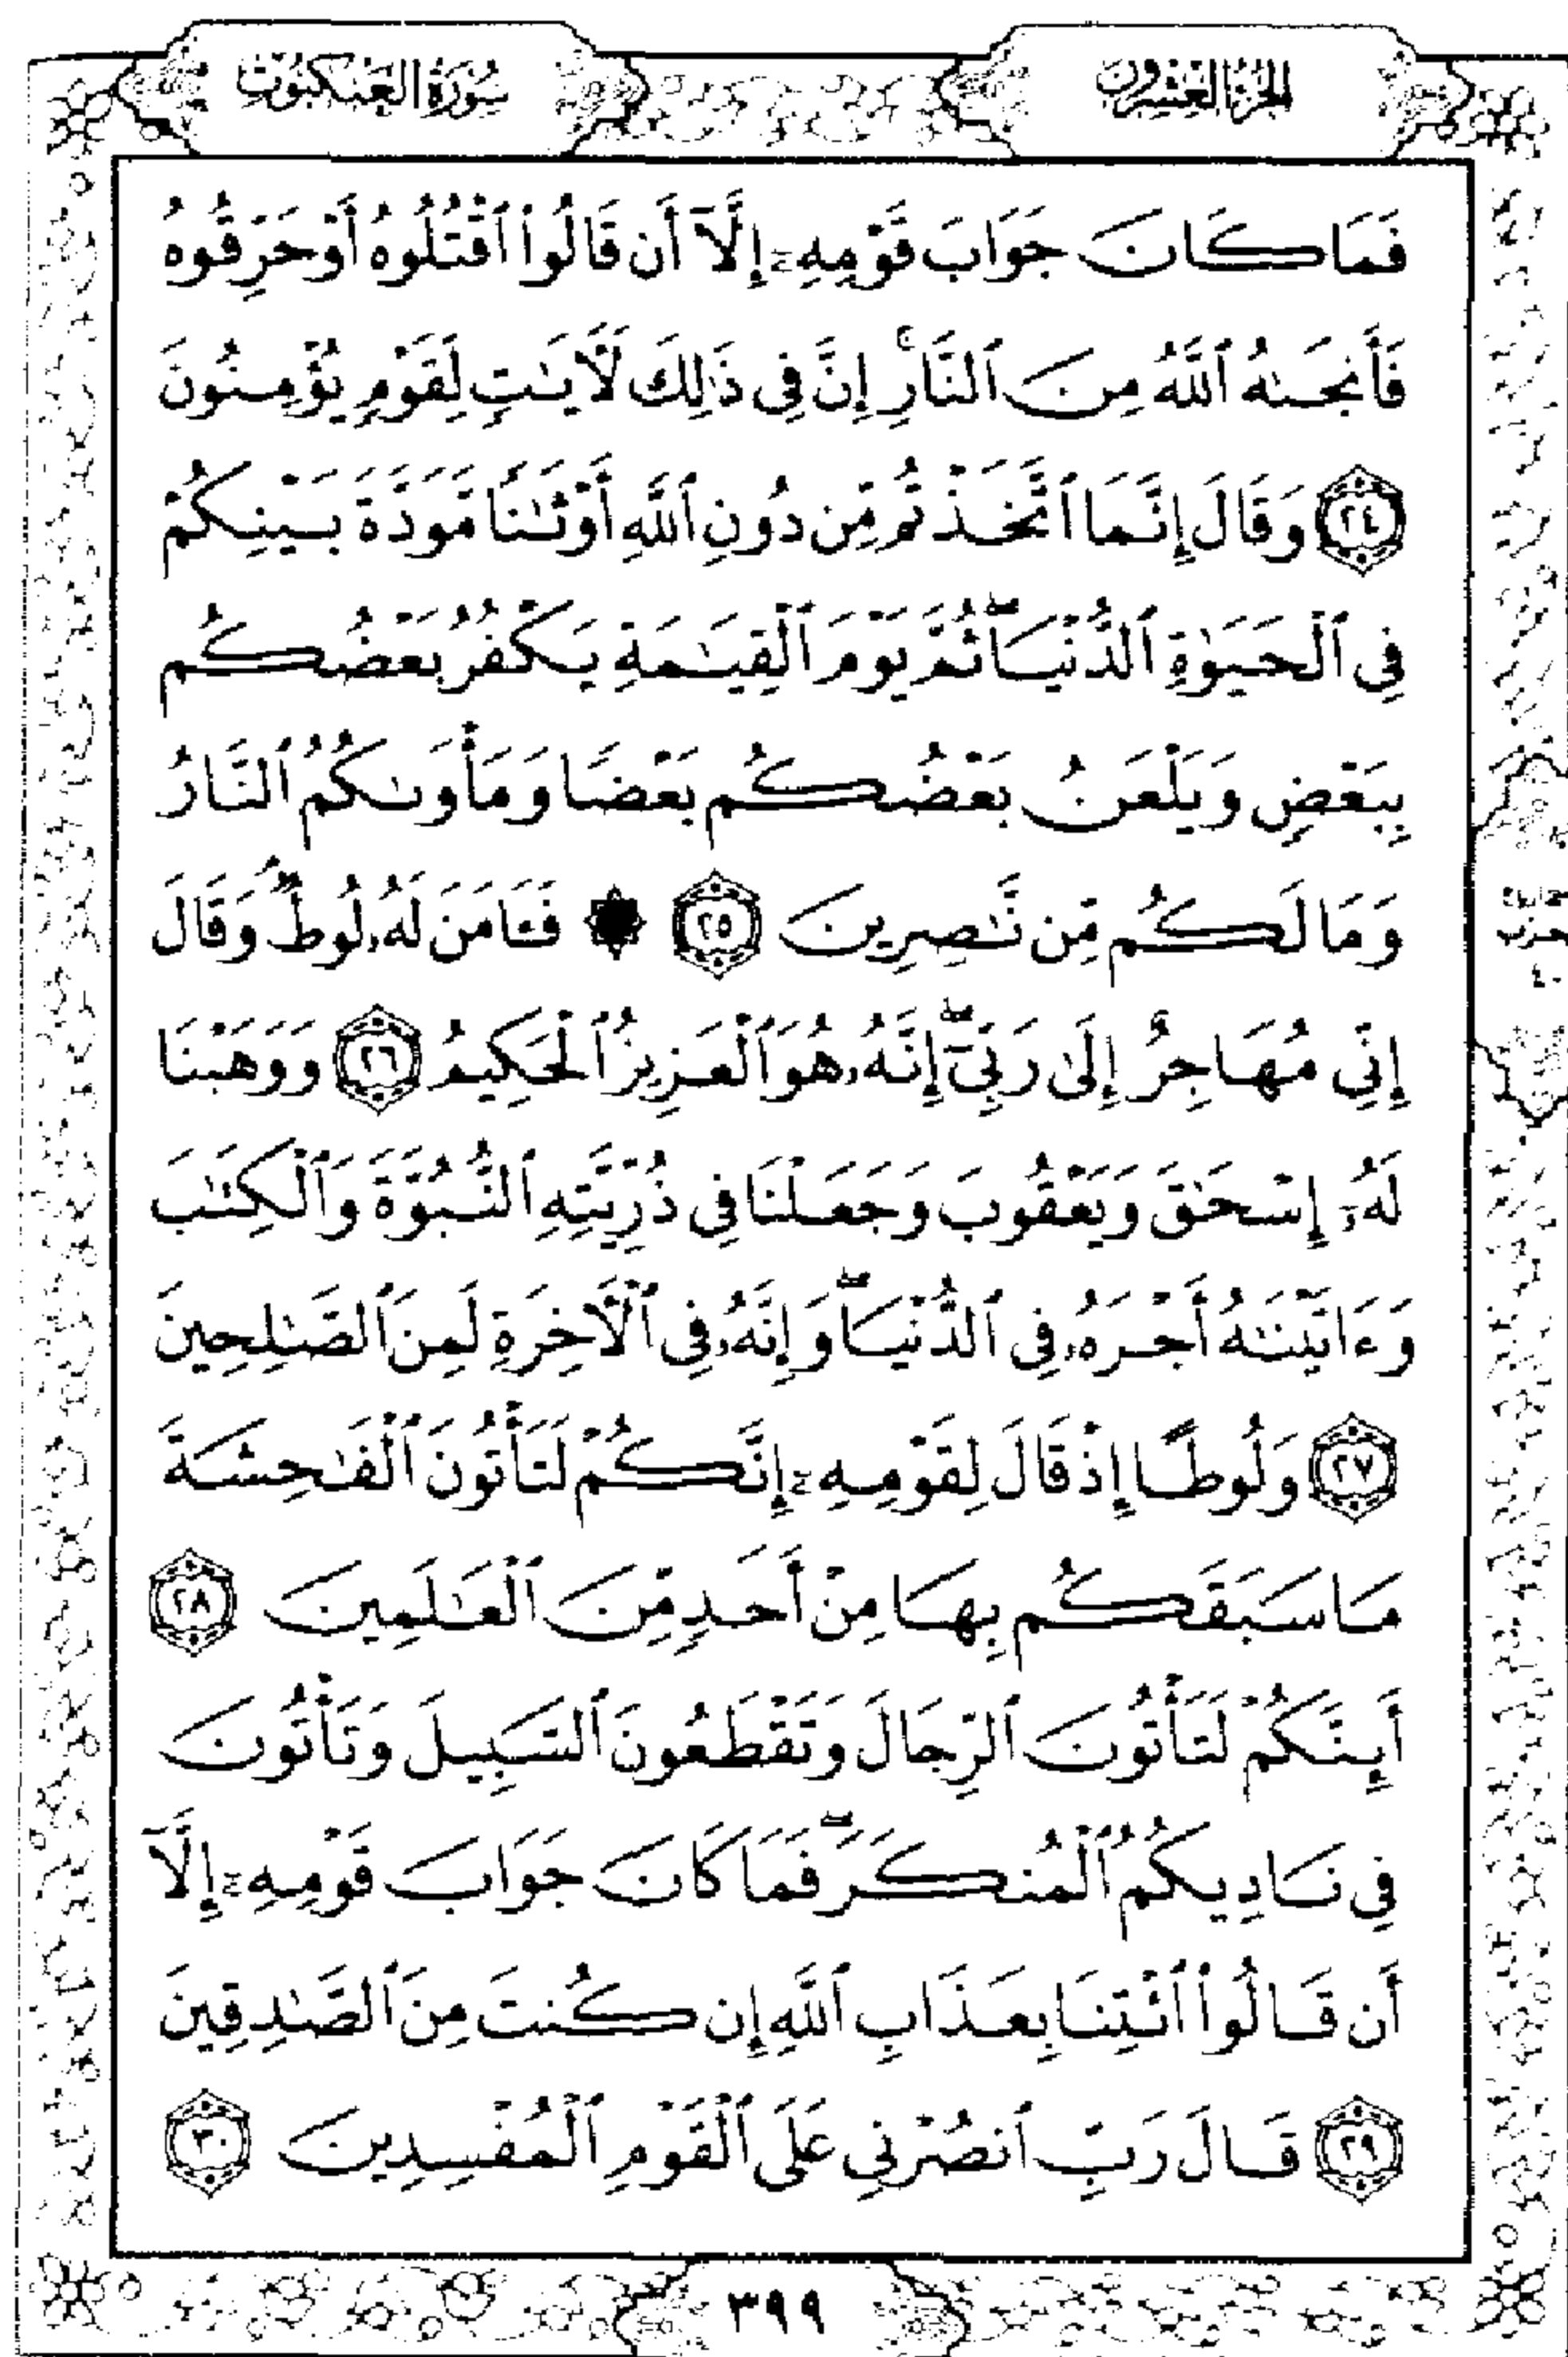 الجزء العشرون
سورة العنكبوت
فَمَا كَانَ جَوَابَ قَوْمِهِۦٓ إِلَّآ أَن قَالُوا۟ ٱقْتُلُوهُ أَوْ حَرِّقُوهُ
فَأَنجَىٰهُ ٱللَّهُ مِنَ ٱلنَّارِ ۚ إِنَّ فِى ذَٰلِكَ لَـَٔايَـٰتٍ لِّقَوْمٍ يُؤْمِنُونَ
٢٤ وَقَالَ إِنَّمَا ٱتَّخَذْتُم مِّن دُونِ ٱللَّهِ أَوْثَـٰنًا مَّوَدَّةَ بَيْنِكُمْ
فِى ٱلْحَيَوٰةِ ٱلدُّنْيَا ۖ ثُمَّ يَوْمَ ٱلْقِيَـٰمَةِ يَكْفُرُ بَعْضُكُم
بِبَعْضٍ وَيَلْعَنُ بَعْضُكُم بَعْضًا وَمَأْوَىٰكُمُ ٱلنَّارُ
وَمَا لَكُم مِّن نَّـٰصِرِينَ ٢٥ ۞ فَـَٔامَنَ لَهُۥ لُوطٌ ۘ وَقَالَ
إِنِّى مُهَاجِرٌ إِلَىٰ رَبِّىٓ ۖ إِنَّهُۥ هُوَ ٱلْعَزِيزُ ٱلْحَكِيمُ ٢٦ وَوَهَبْنَا
لَهُۥٓ إِسْحَـٰقَ وَيَعْقُوبَ وَجَعَلْنَا فِى ذُرِّيَّتِهِ ٱلنُّبُوَّةَ وَٱلْكِتَـٰبَ
وَءَاتَيْنَـٰهُ أَجْرَهُۥ فِى ٱلدُّنْيَا ۖ وَإِنَّهُۥ فِى ٱلْـَٔاخِرَةِ لَمِنَ ٱلصَّـٰلِحِينَ
٢٧ وَلُوطًا إِذْ قَالَ لِقَوْمِهِۦٓ إِنَّكُمْ لَتَأْتُونَ ٱلْفَـٰحِشَةَ
مَا سَبَقَكُم بِهَا مِنْ أَحَدٍ مِّنَ ٱلْعَـٰلَمِينَ ٢٨
أَئِنَّكُمْ لَتَأْتُونَ ٱلرِّجَالَ وَتَقْطَعُونَ ٱلسَّبِيلَ وَتَأْتُونَ
فِى نَادِيكُمُ ٱلْمُنكَرَ ۖ فَمَا كَانَ جَوَابَ قَوْمِهِۦٓ إِلَّآ
أَن قَالُوا۟ ٱئْتِنَا بِعَذَابِ ٱللَّهِ إِن كُنتَ مِنَ ٱلصَّـٰدِقِينَ
٢٩ قَالَ رَبِّ ٱنصُرْنِى عَلَى ٱلْقَوْمِ ٱلْمُفْسِدِينَ ٣٠
حزب
٤٠
٣٩٩